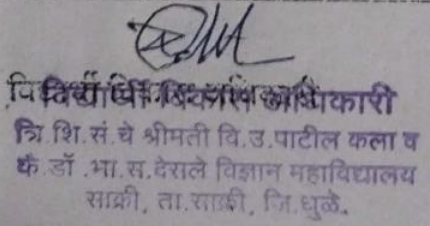 विद्यार्थी विकास अधिकारी
त्रि.शि.सं.चे श्रीमती वि.उ.पाटील कला व
कै.डॉ.भा.स.देसले विज्ञान महाविद्यालय
साक्री, ता.साक्री, जि.धुळे.